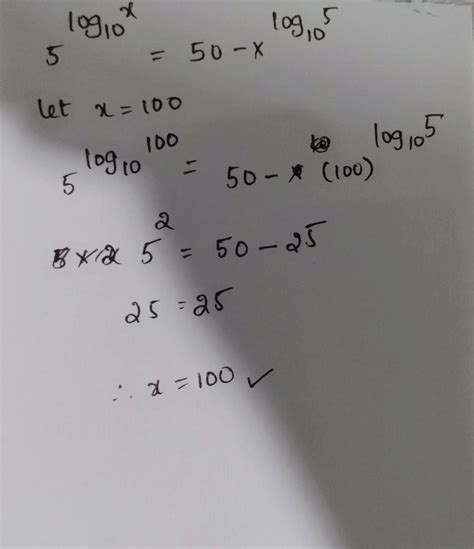 5^{log_{10}^{x}} = 50 - x^{log_{10}5}
let x = 100
5^{log_{10}^{100}} = 50 - (100)^{log_{10}5}
5^{2} = 50 - 25
25 = 25
∴ x = 100 ✓